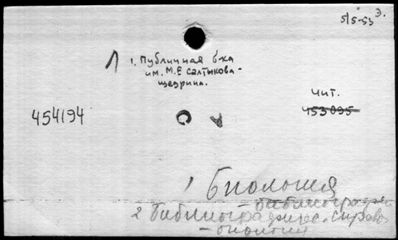 5/5-53 Э.
1. Публичная б-ка
им. М.Е Салтыкова-
Щедрина.
Чит.
454194
453095
1 Биология
- библиография
2 Библиография. Справ.
- биология